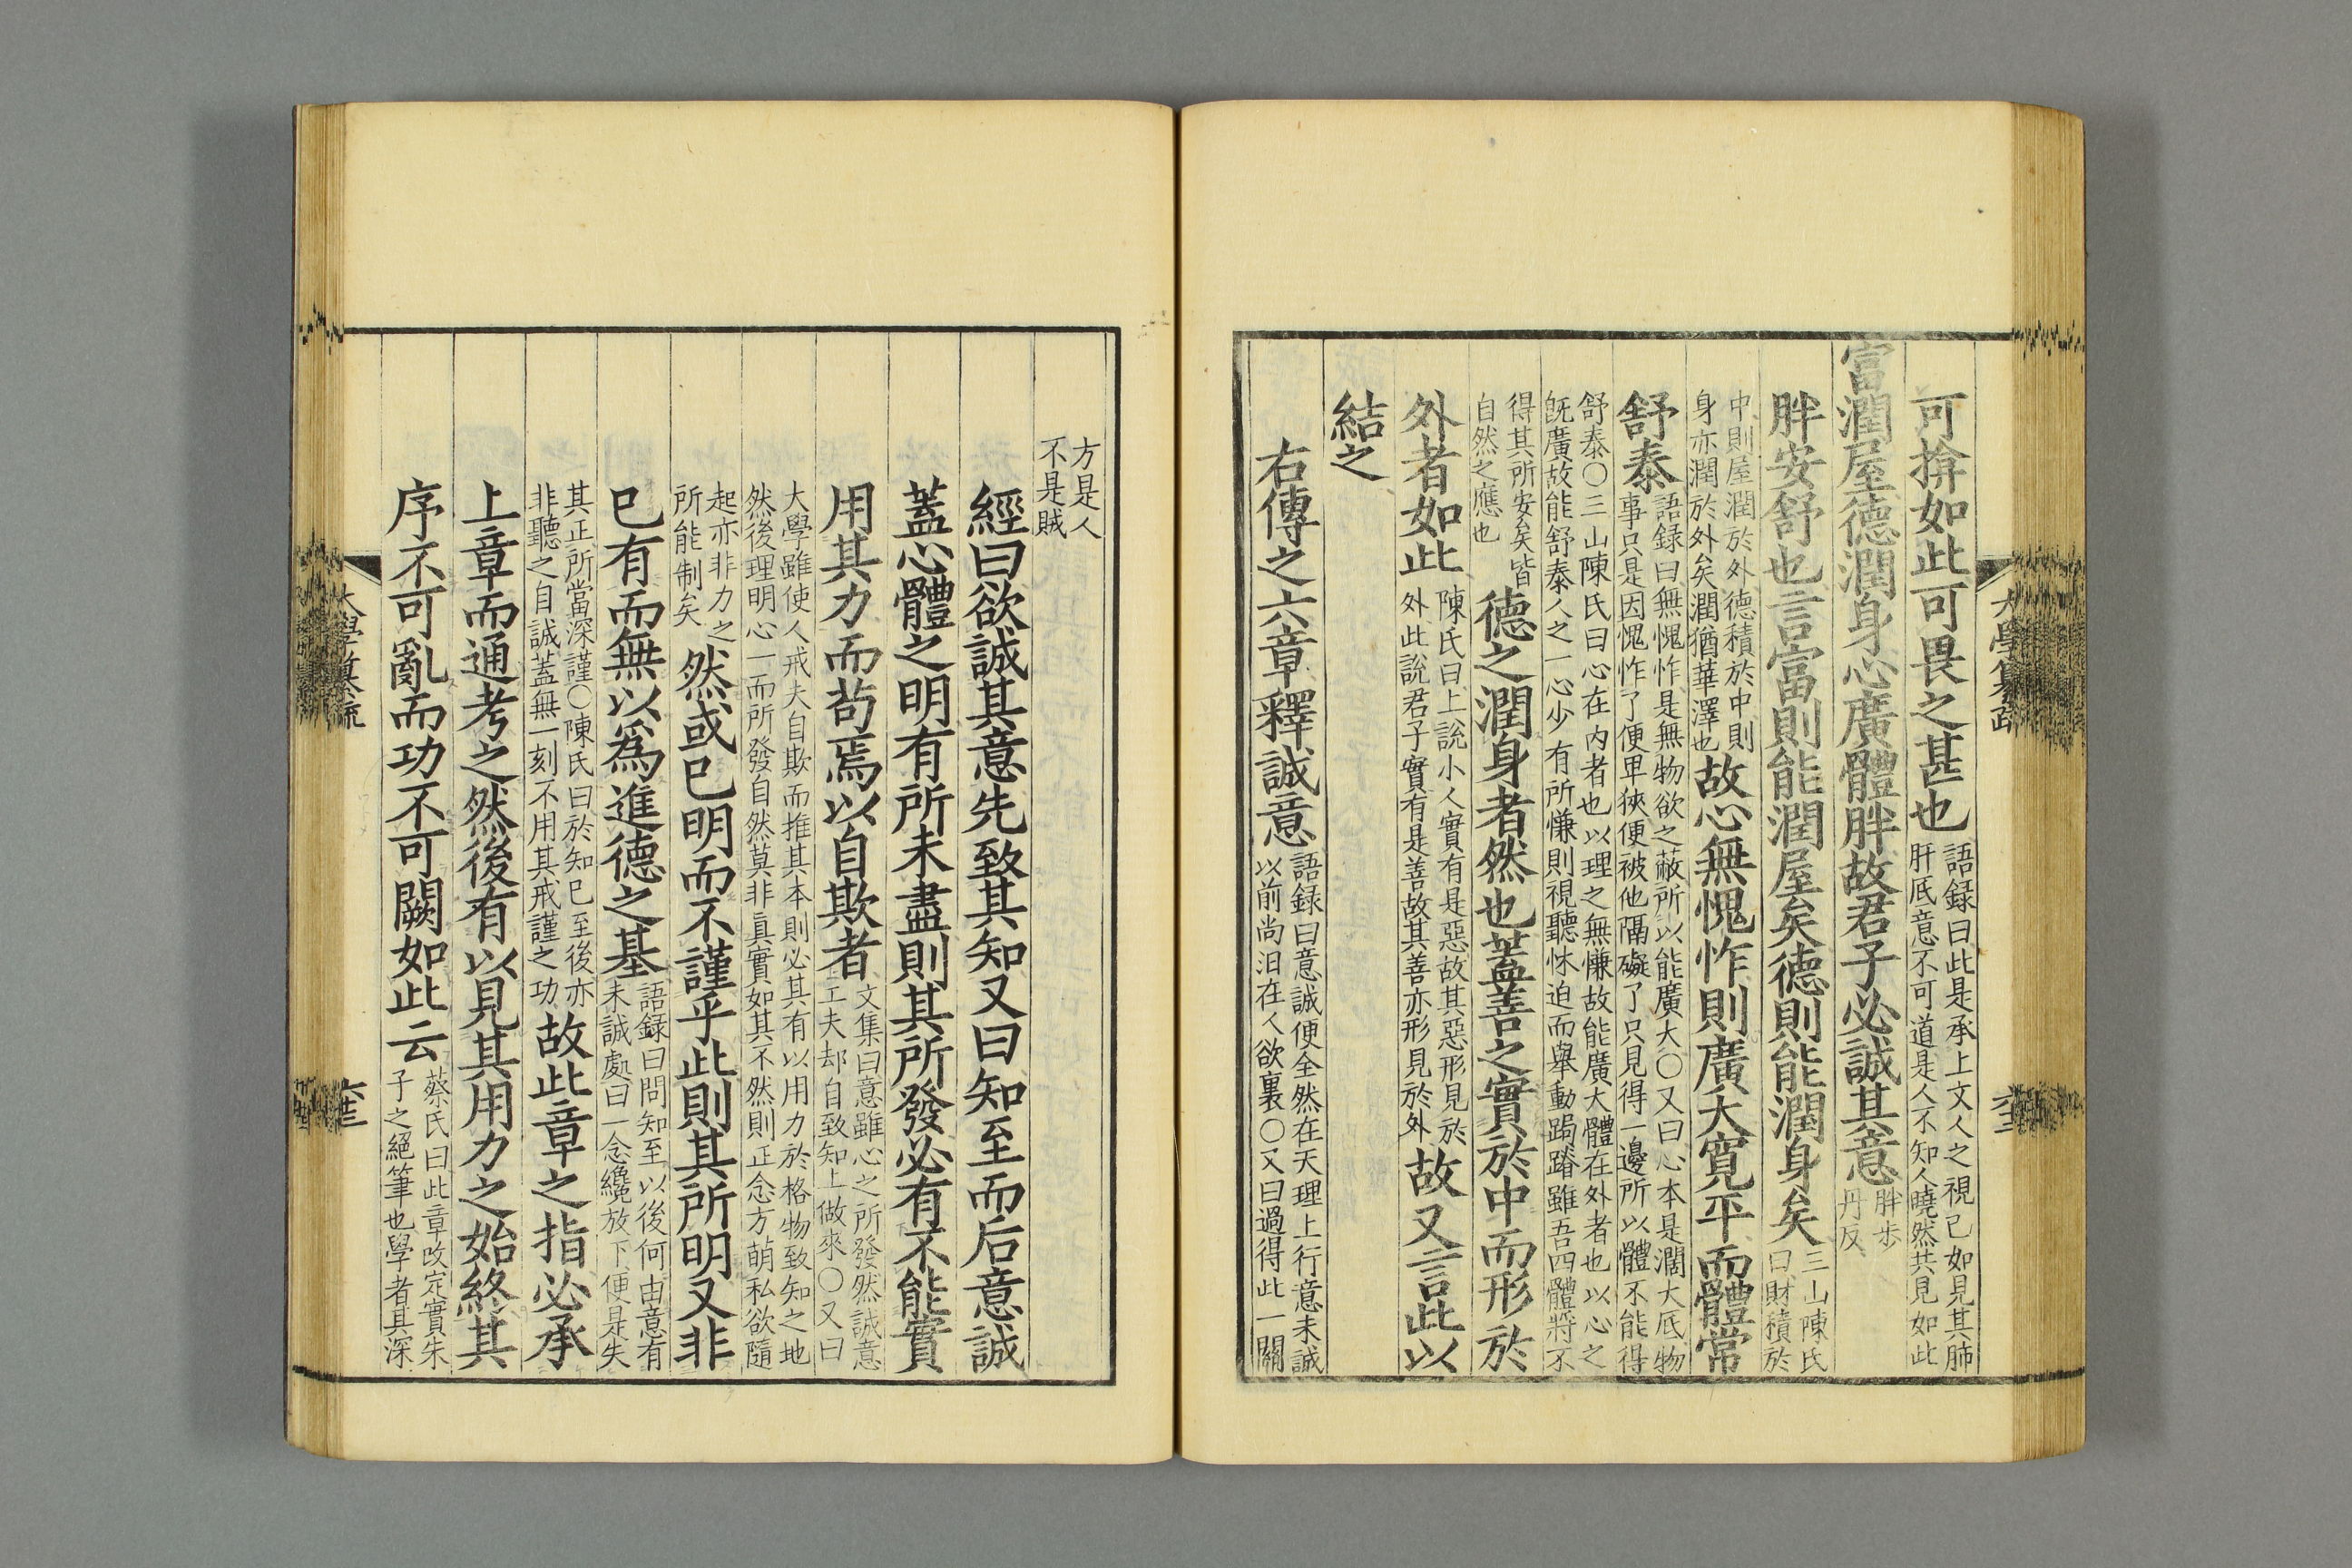 大學纂疏
六十三
可揜如此可畏之甚也語録曰此是承上文人之視己如見其肺肝底意不可道是人不知人曉然共見如此
富潤屋德潤身心廣體胖故君子必誠其意胖步丹反
胖安舒也言富則能潤屋矣德則能潤身矣三山陳氏曰財積於
中則屋潤於外德積於中則身亦潤於外矣潤猶華澤也故心無愧怍則廣大寛平而體常
舒泰語録曰無愧怍是無物欲之蔽所以能廣大〇又曰心本是濶大底物事只是因愧怍了便卑狹便被他隔礙了只見得一邊所以體不能得
舒泰〇三山陳氏曰心在内者也以理之無慊故能廣大體在外者也以心之既廣故能舒泰人之一心少有所慊則視聽怵迫而舉動跼蹐雖吾四體將不
得其所安矣皆自然之應也德之潤身者然也葢善之實於中而形於
外者如此陳氏曰上說小人實有是惡故其惡形見於外此說君子實有是善故其善亦形見於外故又言此以
結之
右傳之六章釋誠意語録曰意誠便全然在天理上行意未誠以前尚汨在人欲裏〇又曰過得此一關
方是人不是賊
經曰欲誠其意先致其知又曰知至而后意誠
蓋心體之明有所未盡則其所發必有不能實
用其力而苟焉以自欺者文集曰意雖心之所發然誠意工夫却自致知上做來〇又曰
大學雖使人戒夫自欺而推其本則必其有以用力於格物致知之地然後理明心一而所發自然莫非真實如其不然則正念方萌私欲隨
起亦非力之所能制矣然或已明而不謹乎此則其所明又非
已有而無以爲進德之基語録曰問知至以後何由意有未誠處曰一念纔放下便是失
其正所當深謹〇陳氏曰於知已至後亦非聽之自誠蓋無一刻不用其戒謹之功故此章之指必承
上章而通考之然後有以見其用力之始終其
序不可亂而功不可闕如此云蔡氏曰此章改定實朱子之絕筆也學者其深
大學纂疏
六十三